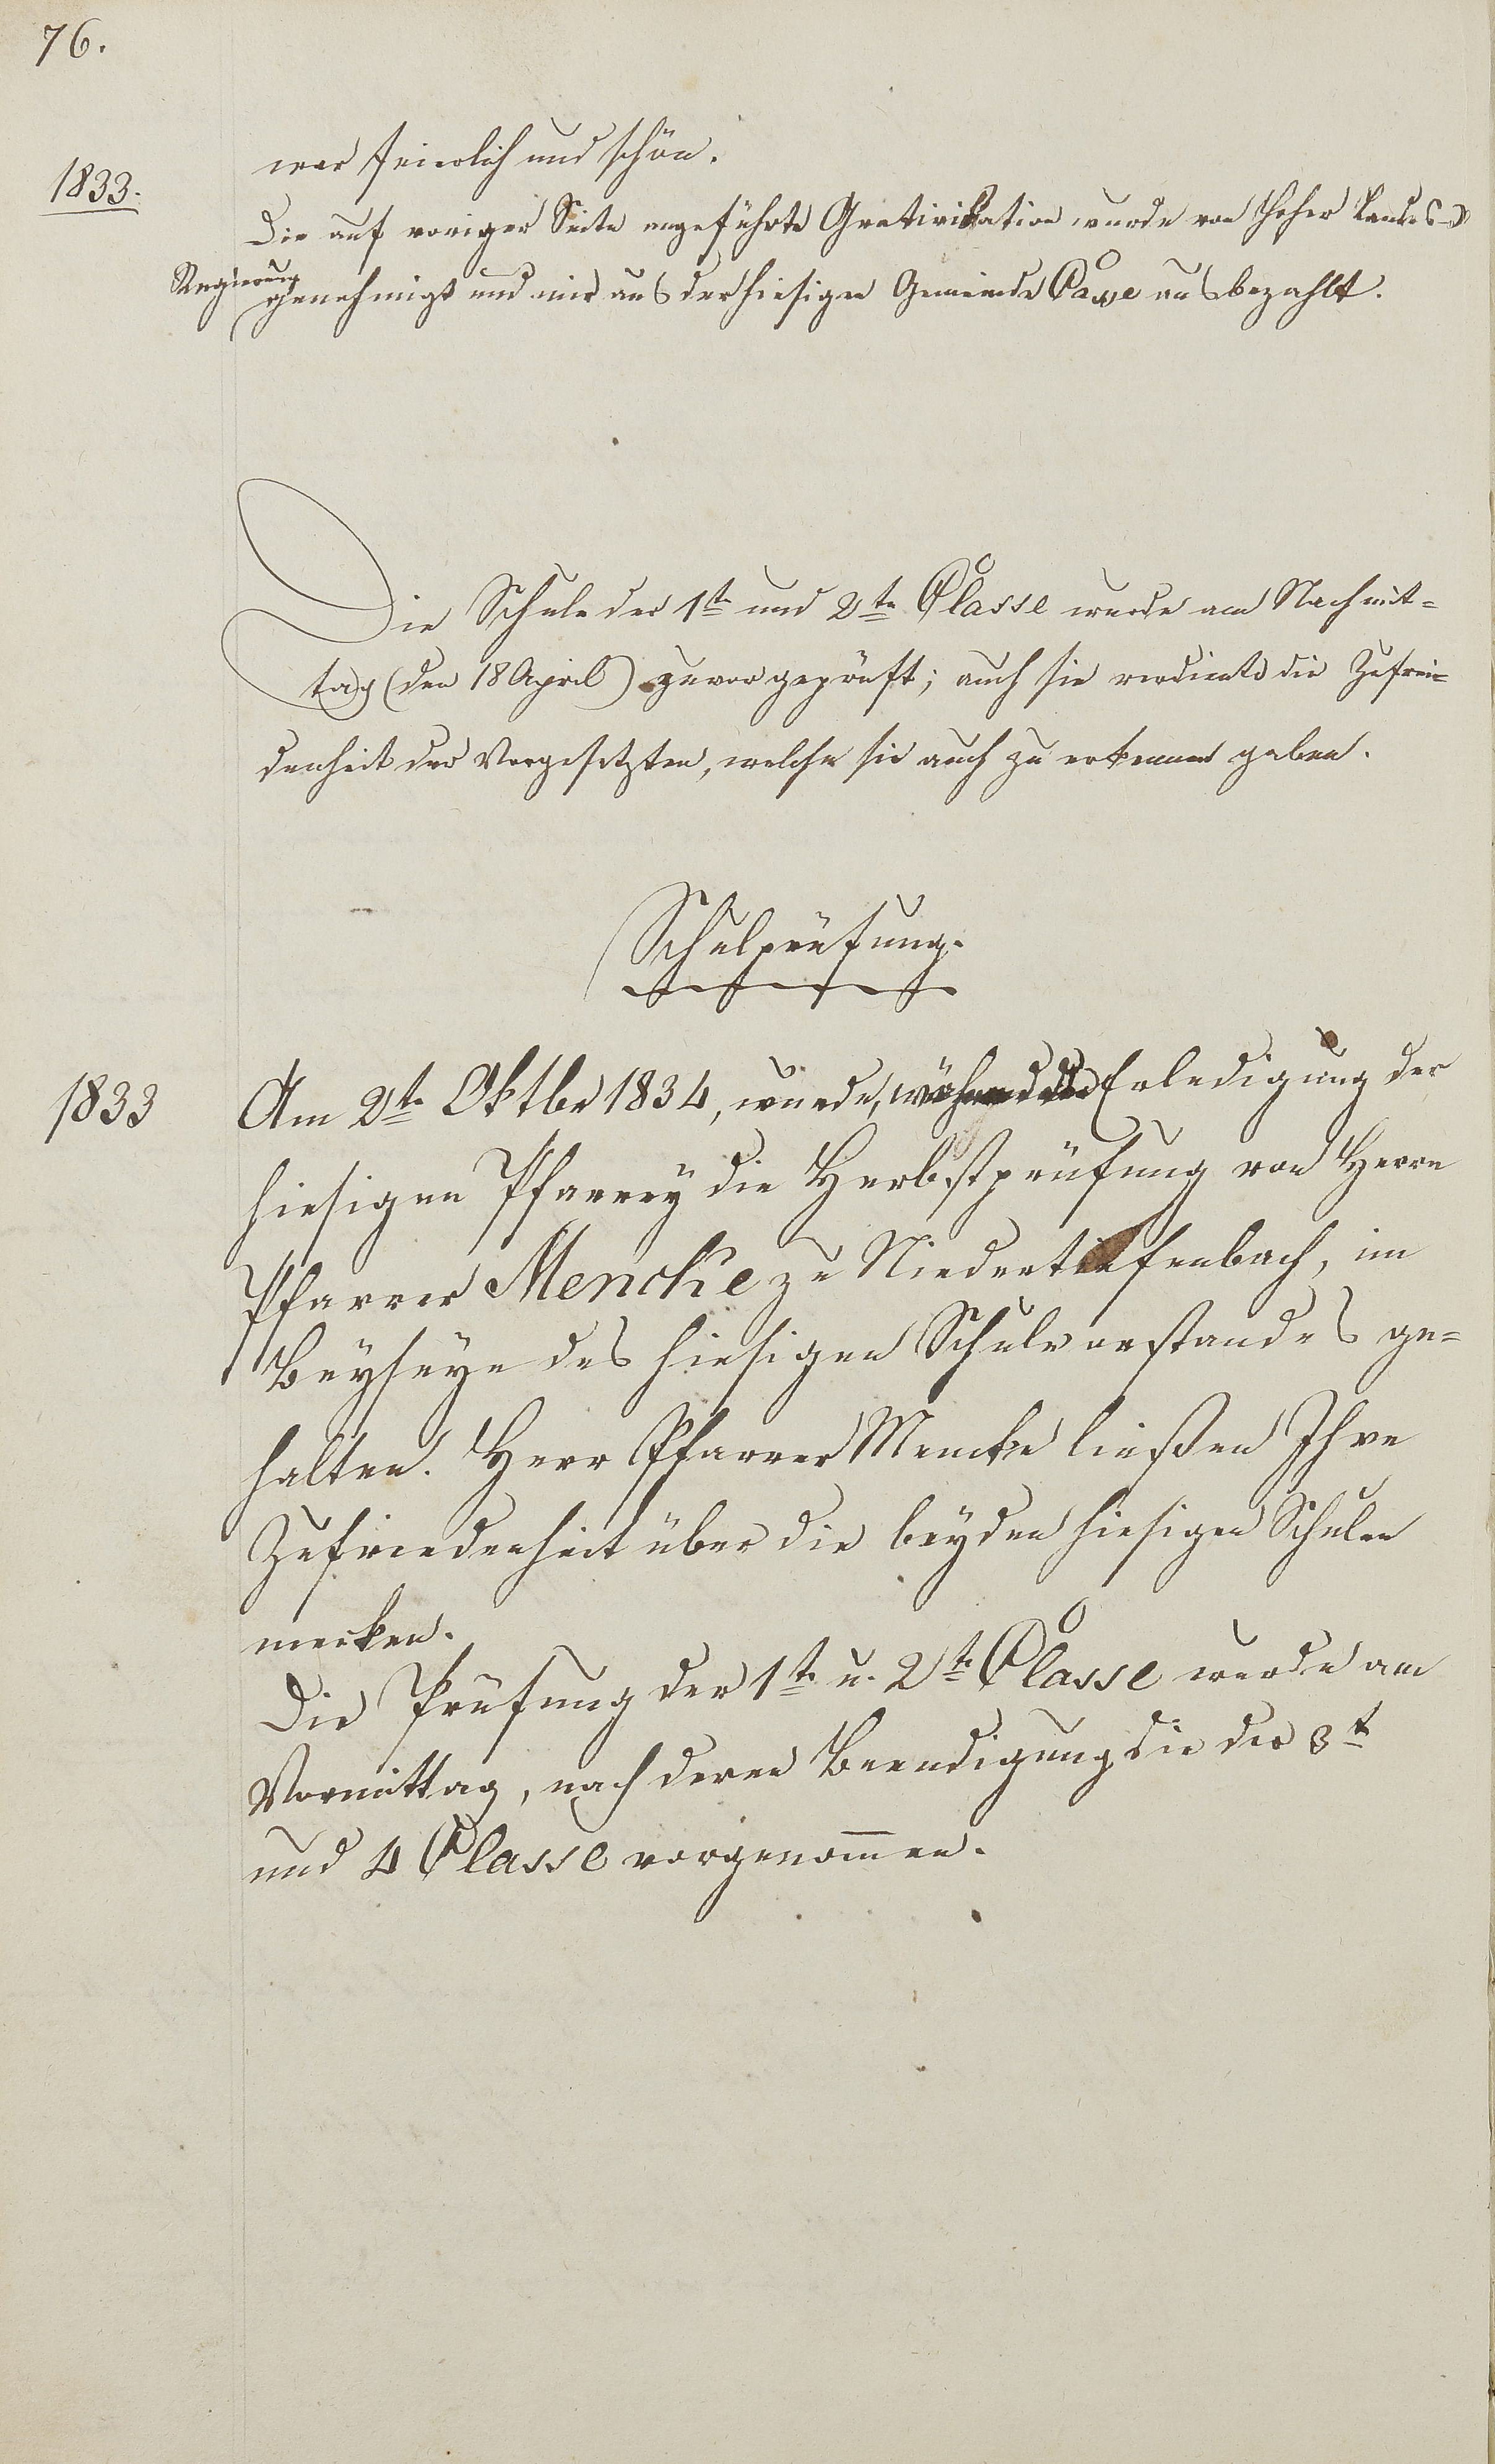 76.
war feierlich und schön.
1833.
Die auf voriger Seite angeführte Gratifikation wurde von Hoher Landes-
Regierung
genehmigt und mir aus der hiesigen Gemeinde Casse ausbezahlt.
Die Schule der 1te und 2te Classe wurde am Nachmit=
tag (den 18 April) zuvor geprüft; auch sie verdiente die Zufrie=
denheit der Vorgesetzten, welche sie auch zu erkennen gaben.
Schulprüfung.
1833
Am 2te Oktbr 1834, wurde, während der Erledigung der
hiesigen Pfarrey die Herbstprüfung von Herrn
Pfarrer Mencke zu Niedertiefenbach, im
Beyseyn des hiesigen Schulvorstandes ge=
halten. Herr Pfarrer Mencke ließen Ihre
Zufriedenheit über die beyden hiesigen Schulen
merken.
Die Prüfung der 1te u. 2te Classe wurde am
Vormittag, nach deren Beendigung die der 3te
und 4 Classe vorgenommen.